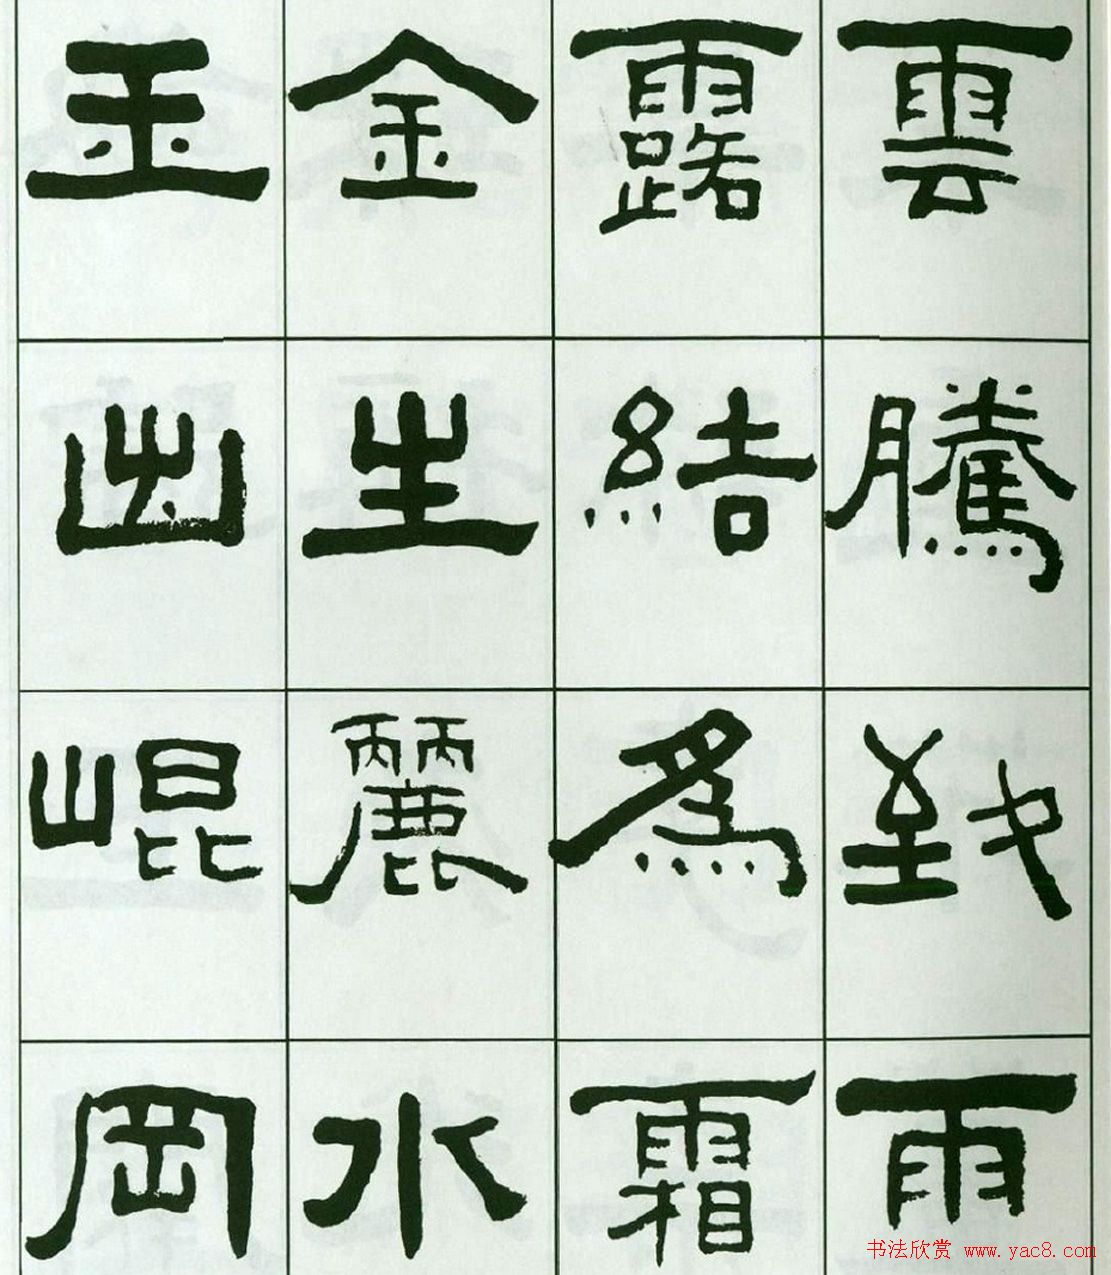 雲騰致雨
露結為霜
金生麗水
玉出崐岡
书法欣赏 www.yac8.com